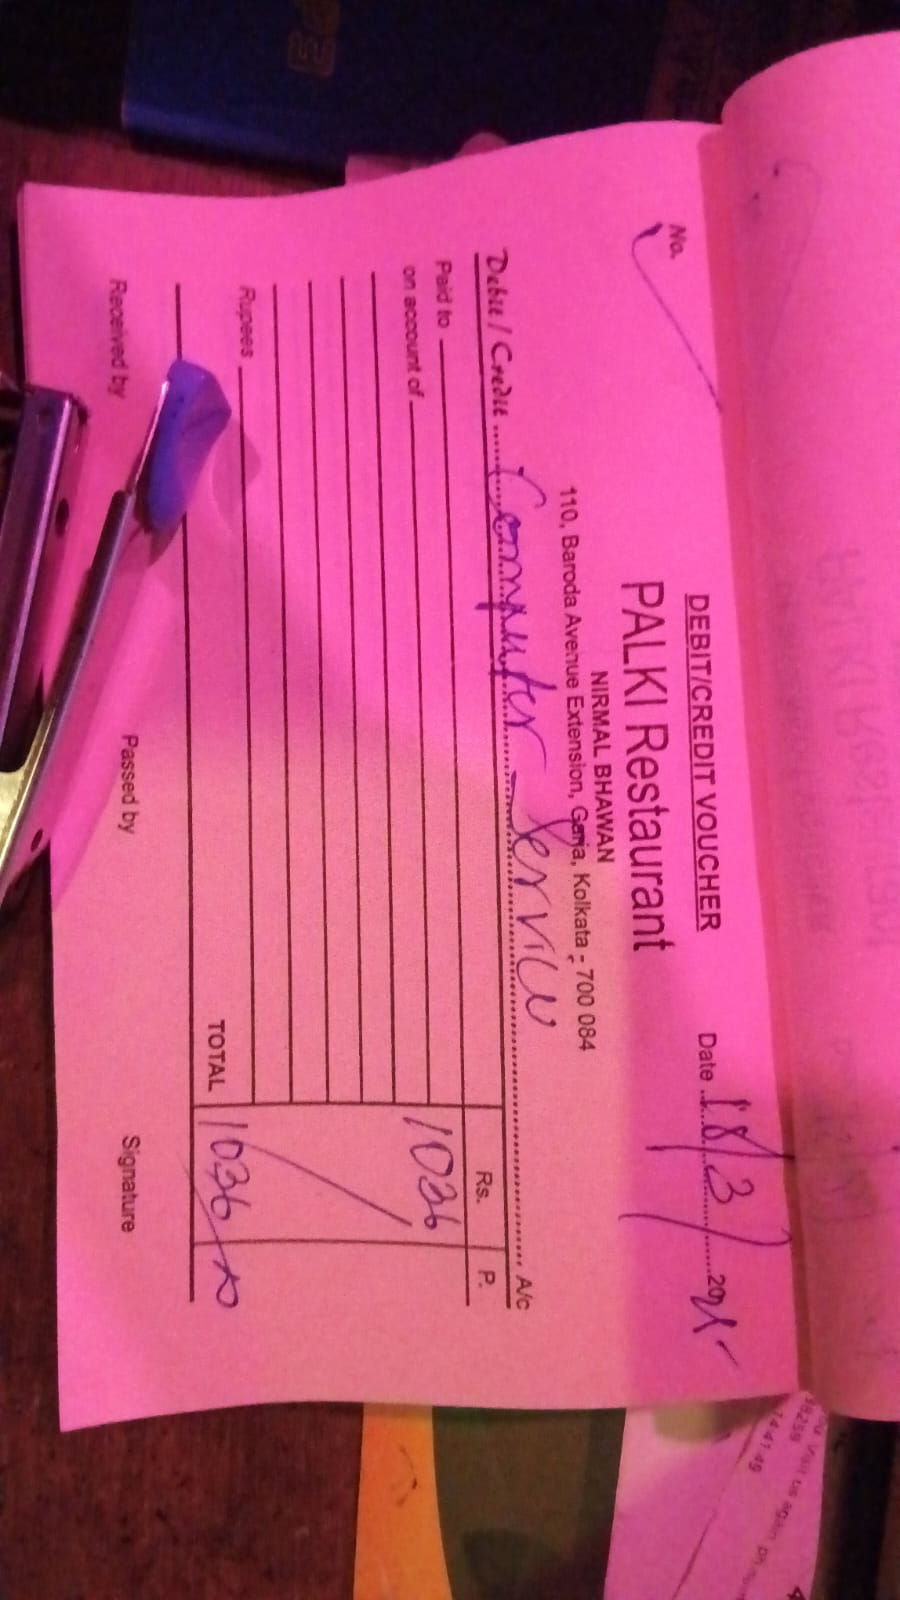 DEBIT/CREDIT VOUCHER
No.
Date 18/3/ 2025
PALKI Restaurant
NIRMAL BHAWAN
110, Baroda Avenue Extension, Garia, Kolkata - 700 084
Debit / Credit Computer Service A/c
Rs. P.
Paid to
on account of 1036
Rupees
TOTAL 1036
Received by Passed by Signature